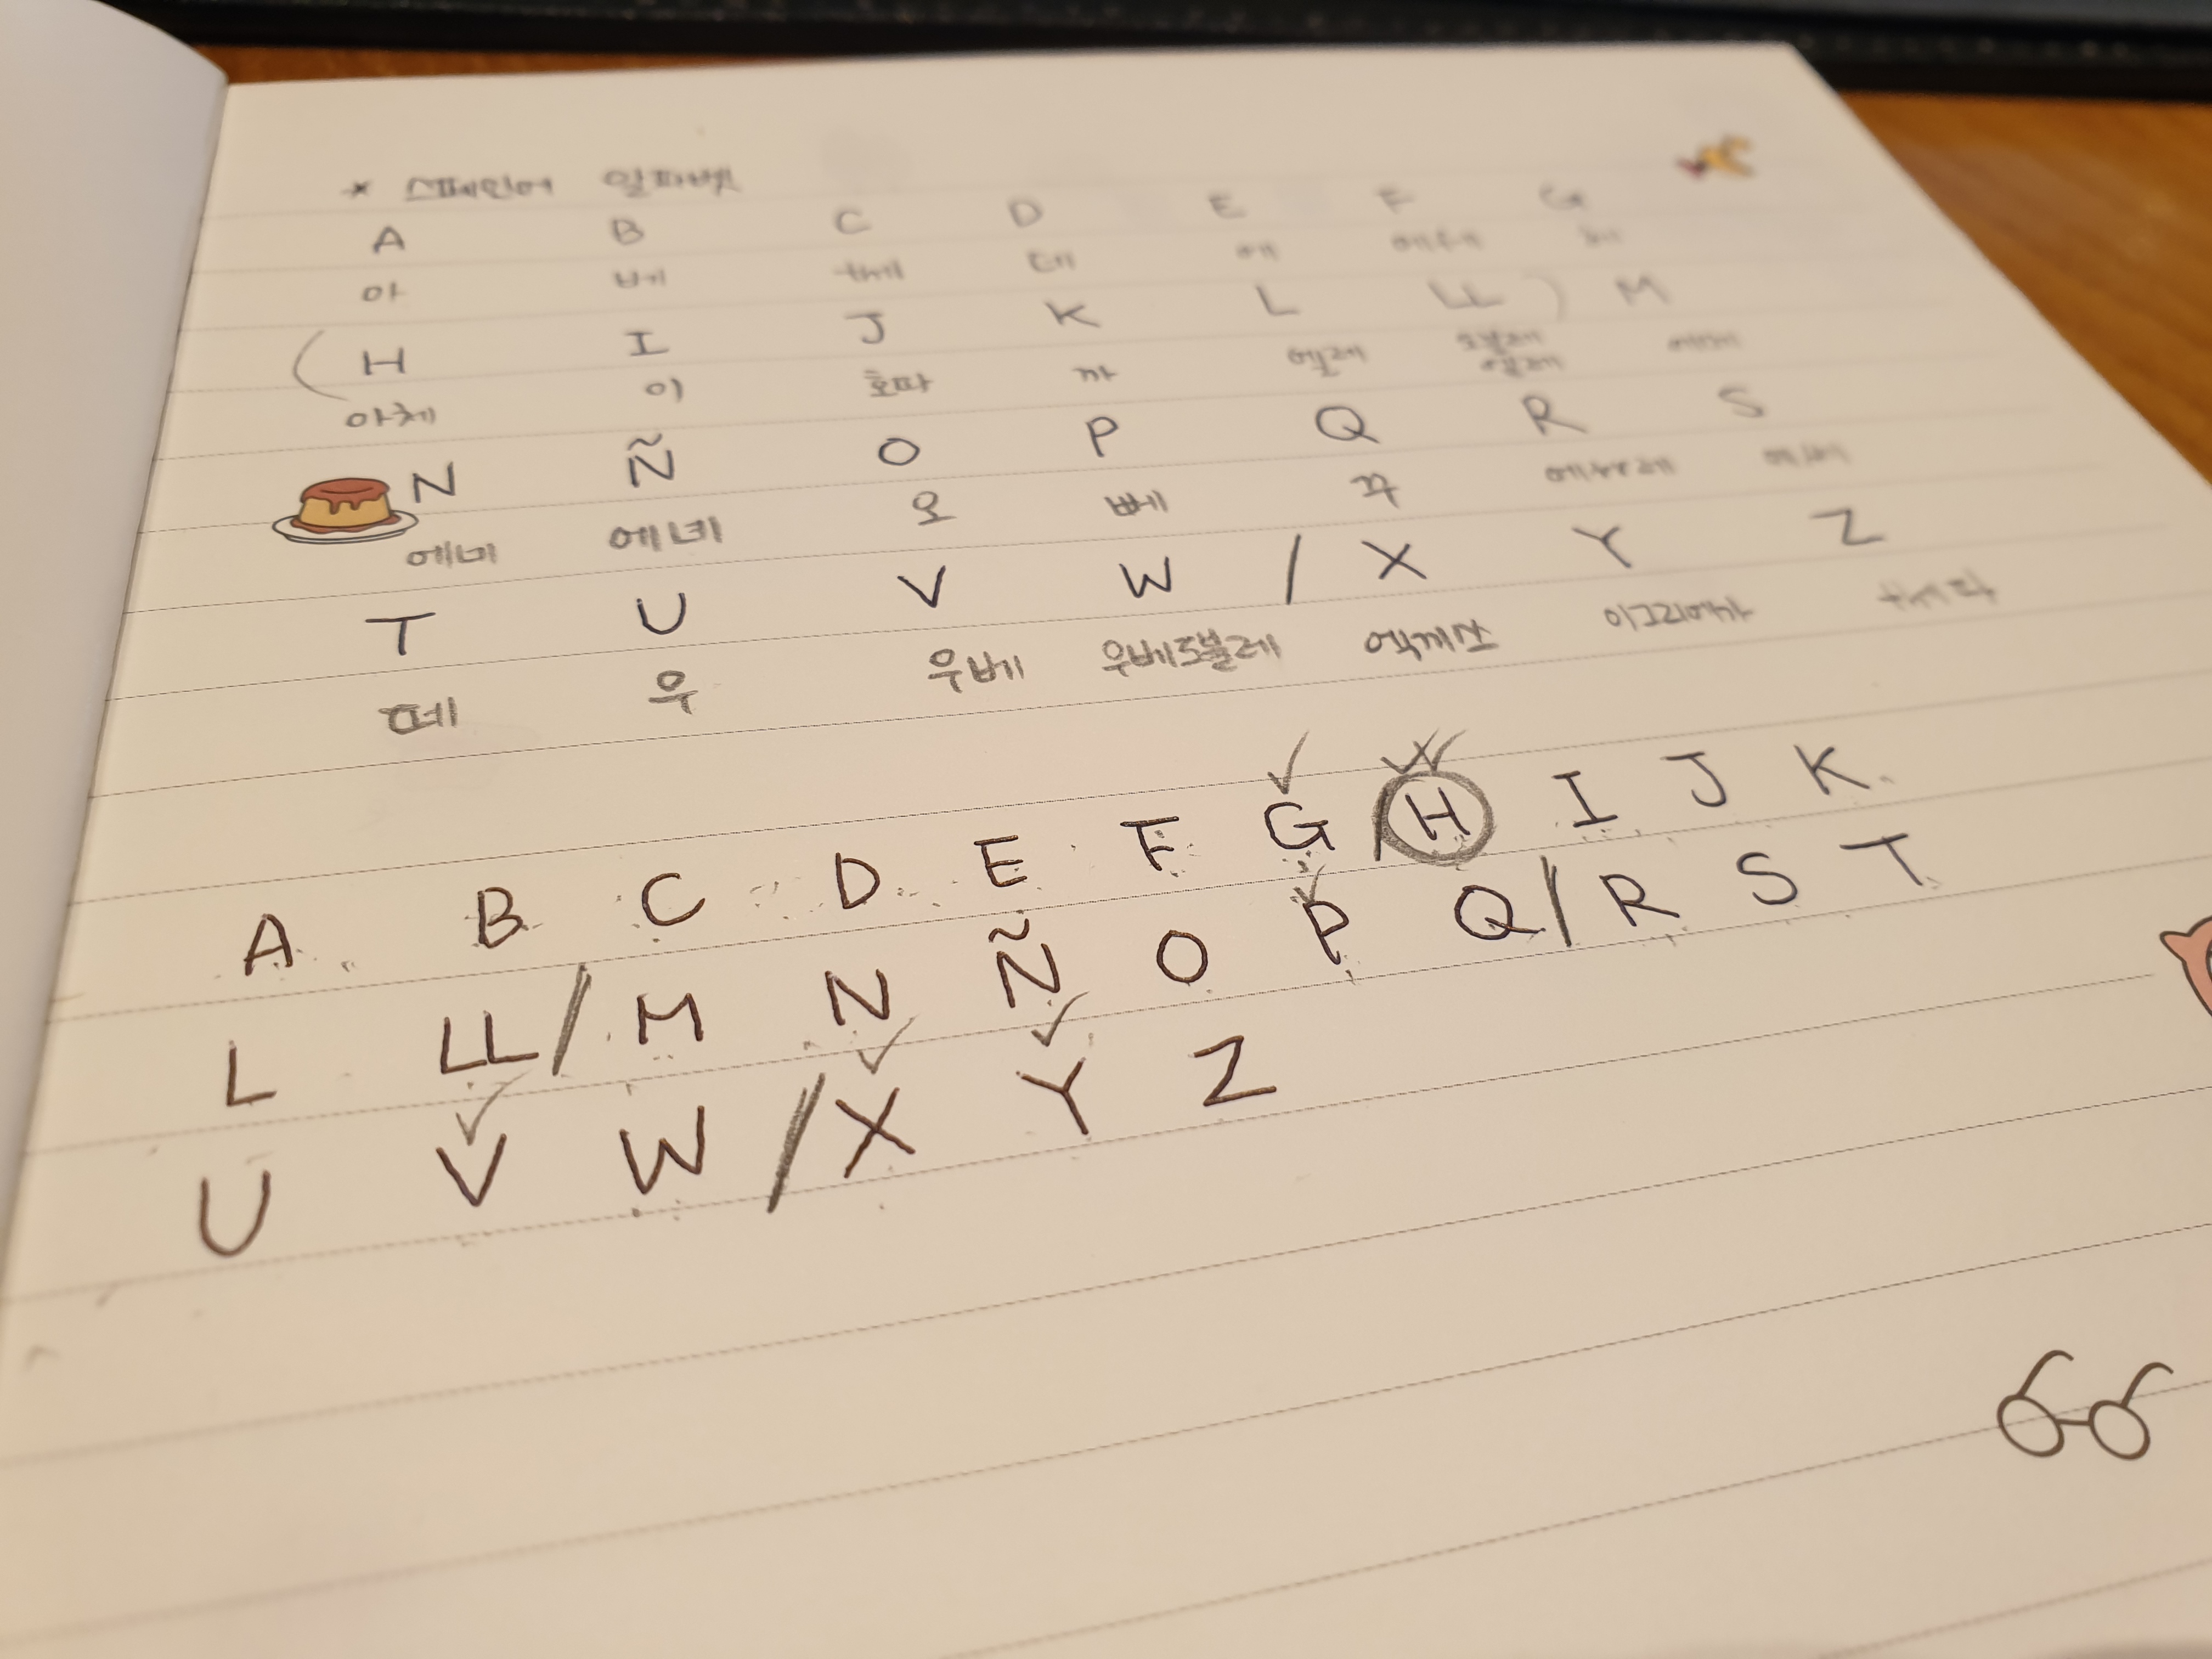 * 스페인어 알파벳
A B C D E F G
아 베 쎄 데 에 에페 헤
( H I J K L LL ) M
아체 이 호따 까 엘레 도블레 엘레 에메
N Ñ O P Q R S
에네 에녜 오 뻬 꾸 에ㄹ레
T U V W / X Y Z
떼 우 우베 우베도블레 엑끼쓰 이그리에가 쎄따
A B C D E F G / H I J K
L LL / M N Ñ O P Q / R S T
U V W / X Y Z